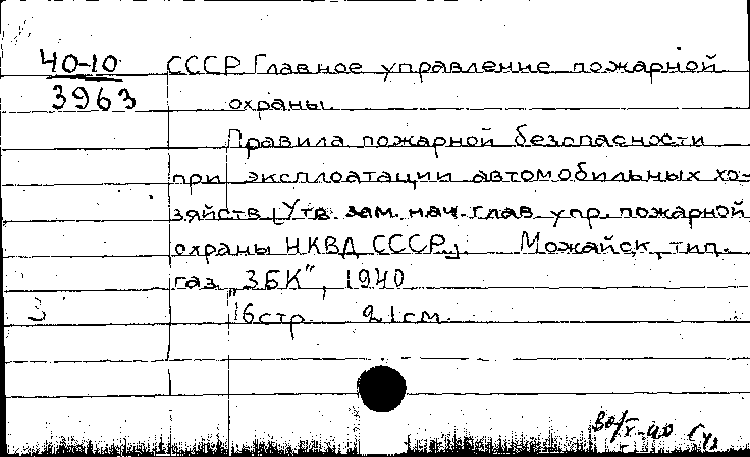 40-10 СССР Главное управление пожарной
3963 охраны.
Правила пожарной безопасности
при эксплоатации автомобильных хо-
зяйств [Утв. зам. нач. глав. упр. пожарной
охраны НКВД СССР]. Можайск, тип.
газ. „ЗБК", 1940
3 16 стр. 21 см.